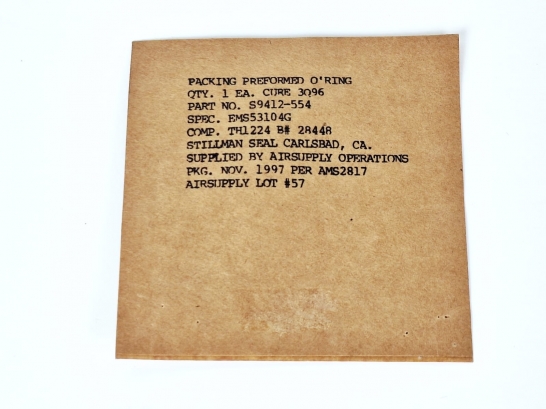 PACKING PREFORMED O'RING
QTY. 1 EA. CURE 3Q96
PART NO. S9412-554
SPEC. EMS53104G
COMP. TH1224 B# 28448
STILLMAN SEAL CARLSBAD, CA.
SUPPLIED BY AIRSUPPLY OPERATIONS
PKG. NOV. 1997 PER AMS2817
AIRSUPPLY LOT #57